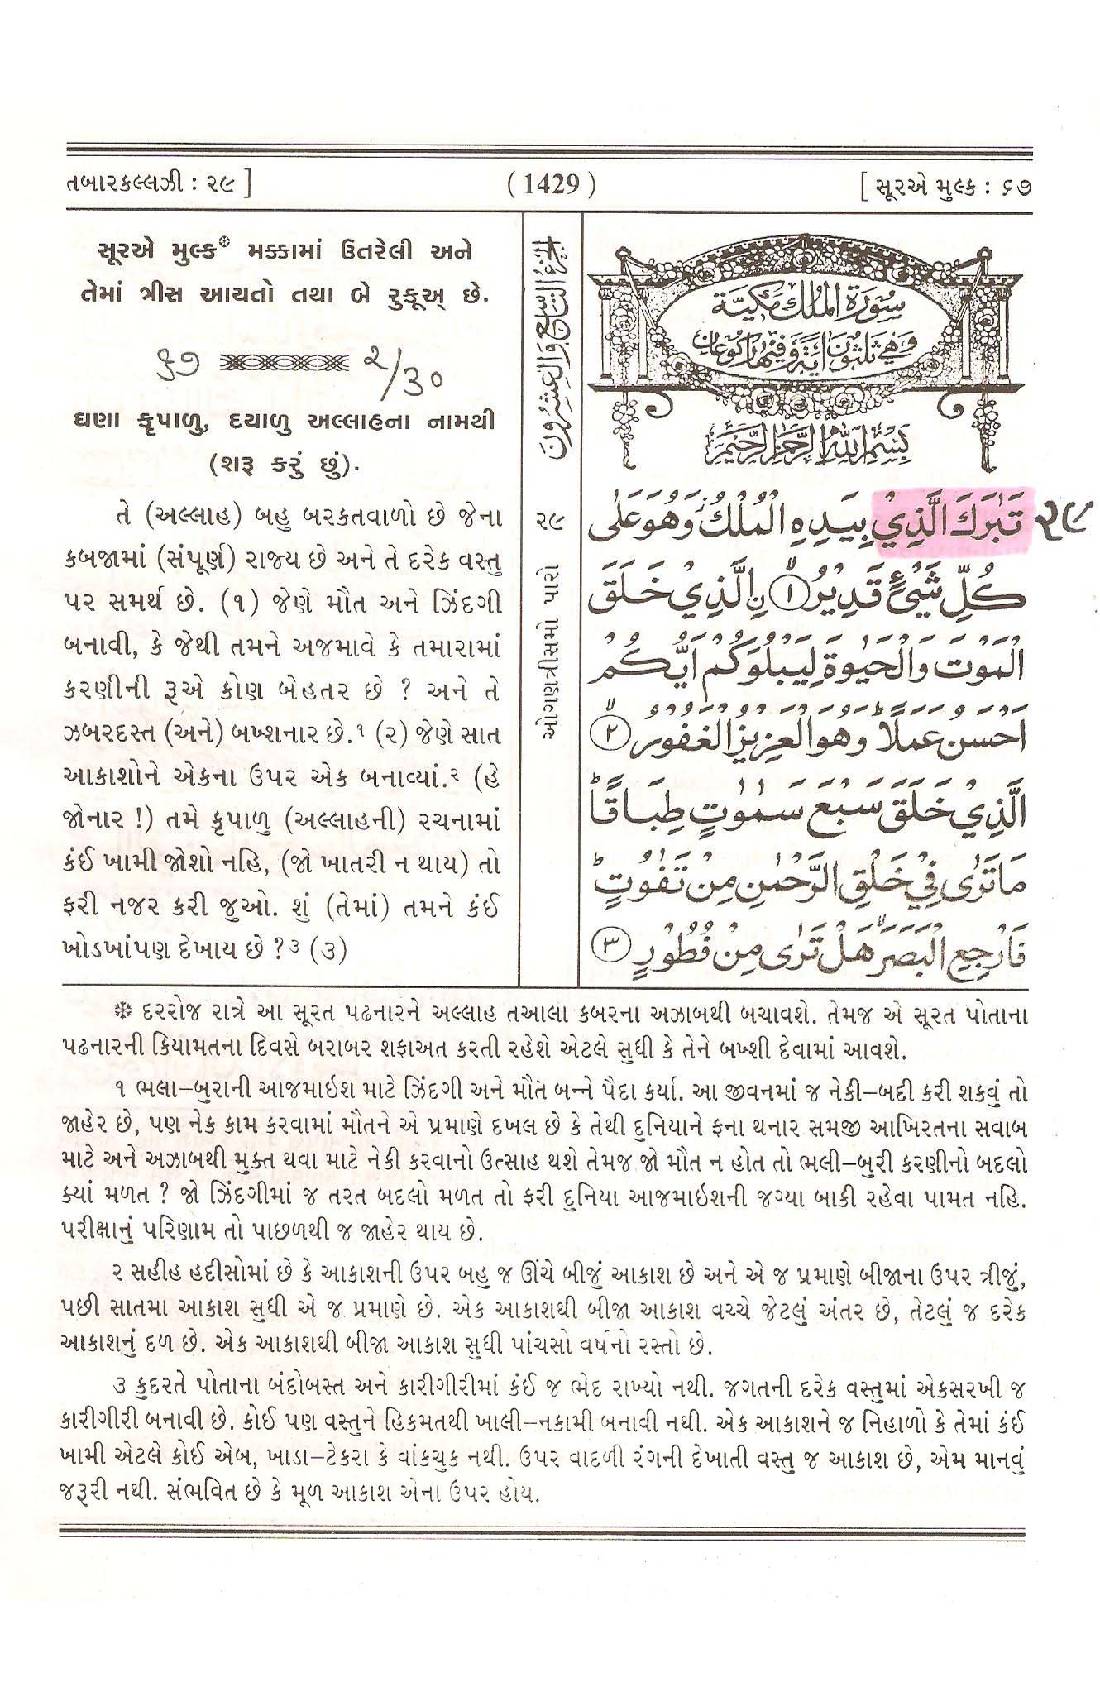 તબારકલ્લઝી : ૨૯ ]
( 1429 )
[ સૂરએ મુલ્ક : ૬૭
સૂરએ મુલ્ક❉ મક્કામાં ઉતરેલી અને
તેમાં ત્રીસ આયતો તથા બે રુકૂઅ્ છે.
૬૭ ૨/૩૦
ઘણા કૃપાળુ, દયાળુ અલ્લાહના નામથી
(શરૂ કરું છું).
તે (અલ્લાહ) બહુ બરકતવાળો છે જેના
કબજામાં (સંપૂર્ણ) રાજ્ય છે અને તે દરેક વસ્તુ
પર સમર્થ છે. (૧) જેણે મૌત અને ઝિંદગી
બનાવી, કે જેથી તમને અજમાવે કે તમારામાં
કરણીની રૂએ કોણ બેહતર છે ? અને તે
ઝબરદસ્ત (અને) બખ્શનાર છે.૧ (૨) જેણે સાત
આકાશોને એકના ઉપર એક બનાવ્યાં.૨ (હે
જોનાર !) તમે કૃપાળુ (અલ્લાહની) રચનામાં
કંઈ ખામી જોશો નહિ, (જો ખાતરી ન થાય) તો
ફરી નજર કરી જુઓ. શું (તેમાં) તમને કંઈ
ખોડખાંપણ દેખાય છે ?૩ (૩)
الجزء التاسع والعشرون
૨૯
ઓગણત્રીસમો પારો
سُورَةُ الْمُلْكِ مَكِّيَّةٌ
وَهِيَ ثَلٰثُوْنَ اٰيَةً وَّفِيْهَا رُكُوْعَانِ
بِسْمِ اللّٰهِ الرَّحْمٰنِ الرَّحِيْمِ
تَبٰرَكَ الَّذِيْ بِيَدِهِ الْمُلْكُ وَهُوَ عَلٰى ૨૯
كُلِّ شَيْءٍ قَدِيْرُ ۙ﴿۱﴾ نِ الَّذِيْ خَلَقَ
الْمَوْتَ وَالْحَيٰوةَ لِيَبْلُوَكُمْ اَيُّكُمْ
اَحْسَنُ عَمَلًا ؕ وَهُوَ الْعَزِيْزُ الْغَفُوْرُ ۙ﴿۲﴾
الَّذِيْ خَلَقَ سَبْعَ سَمٰوٰتٍ طِبَاقًا ؕ
مَا تَرٰى فِيْ خَلْقِ الرَّحْمٰنِ مِنْ تَفٰوُتٍ ؕ
فَارْجِعِ الْبَصَرَ ۙ هَلْ تَرٰى مِنْ فُطُوْرٍ ﴿۳﴾
❉ દરરોજ રાત્રે આ સૂરત પઢનારને અલ્લાહ તઆલા કબરના અઝાબથી બચાવશે. તેમજ એ સૂરત પોતાના
પઢનારની કિયામતના દિવસે બરાબર શફાઅત કરતી રહેશે એટલે સુધી કે તેને બખ્શી દેવામાં આવશે.
૧ ભલા–બુરાની આજમાઇશ માટે ઝિંદગી અને મૌત બન્ને પૈદા કર્યા. આ જીવનમાં જ નેકી–બદી કરી શકવું તો
જાહેર છે, પણ નેક કામ કરવામાં મૌતને એ પ્રમાણે દખલ છે કે તેથી દુનિયાને ફના થનાર સમજી આખિરતના સવાબ
માટે અને અઝાબથી મુક્ત થવા માટે નેકી કરવાનો ઉત્સાહ થશે તેમજ જો મૌત ન હોત તો ભલી–બુરી કરણીનો બદલો
ક્યાં મળત ? જો ઝિંદગીમાં જ તરત બદલો મળત તો ફરી દુનિયા આજમાઇશની જગ્યા બાકી રહેવા પામત નહિ.
પરીક્ષાનું પરિણામ તો પાછળથી જ જાહેર થાય છે.
૨ સહીહ હદીસોમાં છે કે આકાશની ઉપર બહુ જ ઊંચે બીજું આકાશ છે અને એ જ પ્રમાણે બીજાના ઉપર ત્રીજું,
પછી સાતમા આકાશ સુધી એ જ પ્રમાણે છે. એક આકાશથી બીજા આકાશ વચ્ચે જેટલું અંતર છે, તેટલું જ દરેક
આકાશનું દળ છે. એક આકાશથી બીજા આકાશ સુધી પાંચસો વર્ષનો રસ્તો છે.
૩ કુદરતે પોતાના બંદોબસ્ત અને કારીગીરીમાં કંઈ જ ભેદ રાખ્યો નથી. જગતની દરેક વસ્તુમાં એકસરખી જ
કારીગીરી બનાવી છે. કોઈ પણ વસ્તુને હિકમતથી ખાલી–નકામી બનાવી નથી. એક આકાશને જ નિહાળો કે તેમાં કંઈ
ખામી એટલે કોઈ એબ, ખાડા–ટેકરા કે વાંકચુક નથી. ઉપર વાદળી રંગની દેખાતી વસ્તુ જ આકાશ છે, એમ માનવું
જરૂરી નથી. સંભવિત છે કે મૂળ આકાશ એના ઉપર હોય.